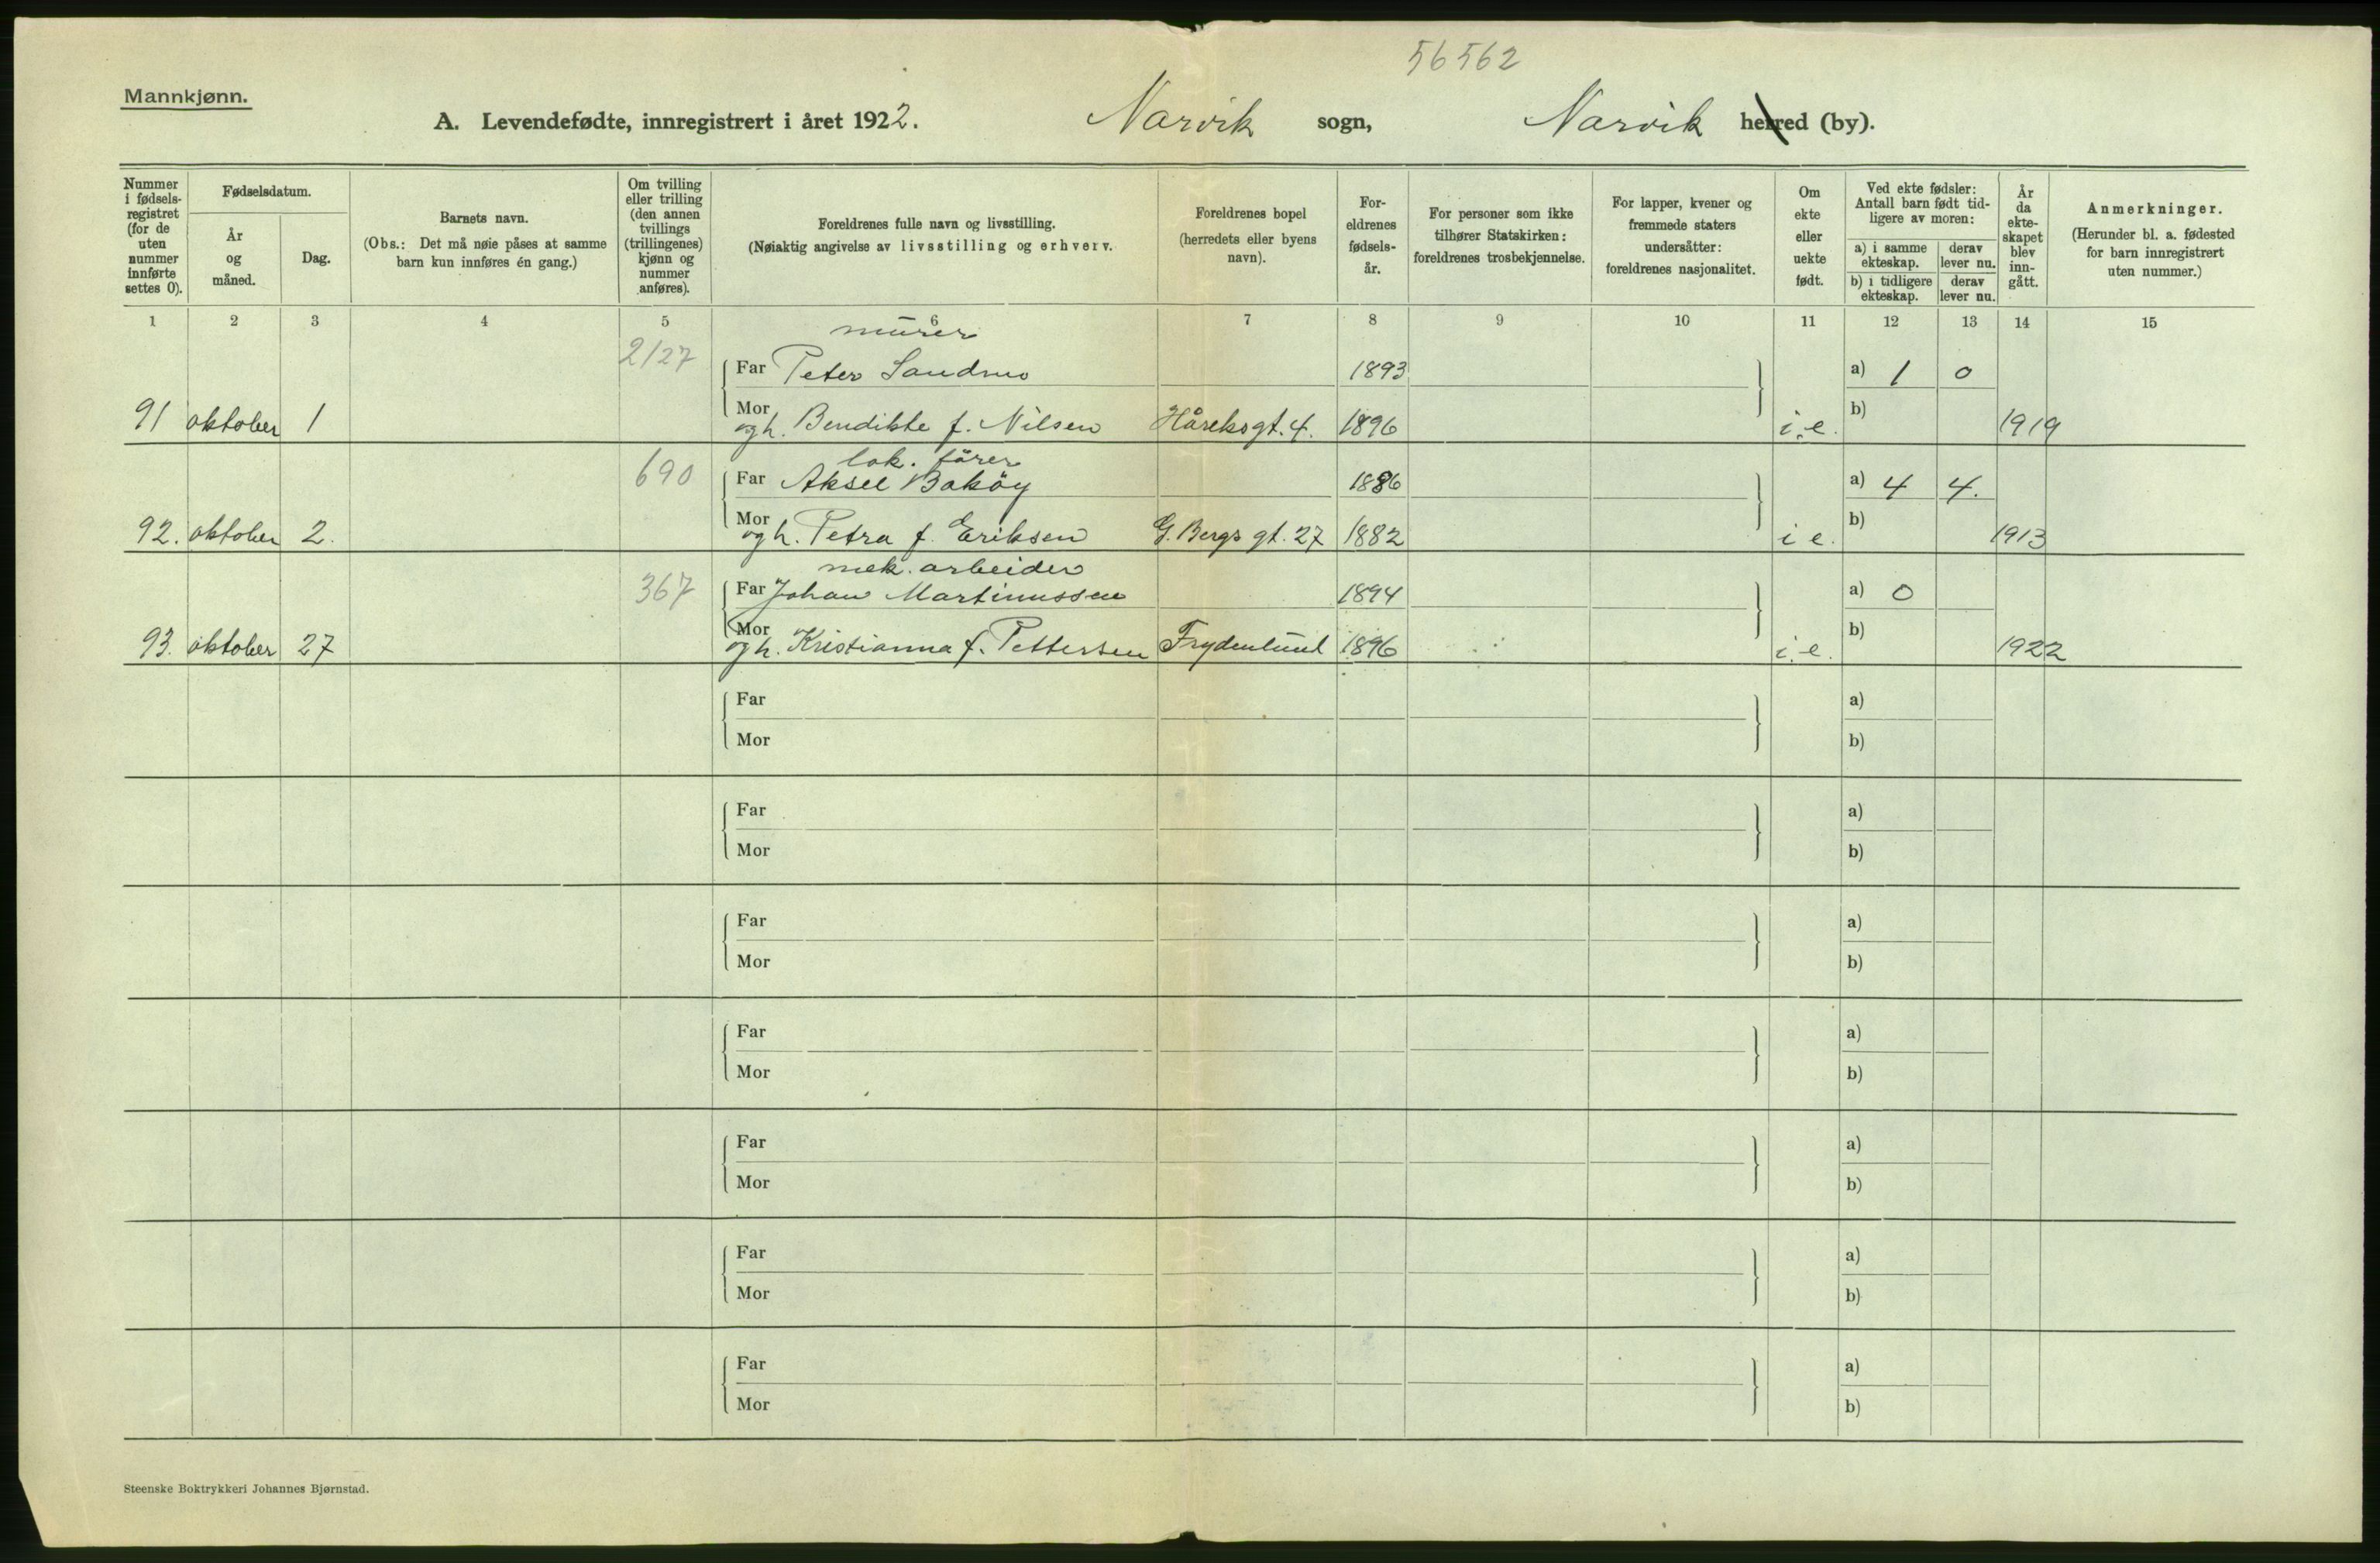 56562
Mannkjønn.
A. Levendefødte, innregistrert i året 1922. Narvik sogn, Narvik herred (by).
Nummer i fødsels-registret (for de uten nummer innførte settes 0).
Fødselsdatum.
År og måned.
Dag.
Barnets navn.
(Obs.: Det må nøie påses at samme barn kun innføres én gang.)
Om tvilling eller trilling (den annen tvillings (trillingenes) kjønn og nummer anføres).
Foreldrenes fulle navn og livsstilling.
(Nøiaktig angivelse av livsstilling og erhverv.
Foreldrenes bopel (herredets eller byens navn).
For-eldrenes fødsels-år.
For personer som ikke tilhører Statskirken: foreldrenes trosbekjennelse.
For lapper, kvener og fremmede staters undersåtter: foreldrenes nasjonalitet.
Om ekte eller uekte født.
Ved ekte fødsler: Antall barn født tid-ligere av moren:
a) i samme ekteskap.
derav lever nu.
b) i tidligere ekteskap.
derav lever nu.
År da ekte-skapet blev inn-gått.
Anmerkninger.
(Herunder bl. a. fødested for barn innregistrert uten nummer.)
1 2 3 4 5 6 7 8 9 10 11 12 13 14 15
murer
2127 Far Peter Sandmo 1893 a) 1 0
91 oktober 1 Mor og h. Bendikte f. Nilsen Håreksgt. 4. 1896 i. e. b) 1919
lok. fører
690 Far Aksel Bakøy 1886 a) 4 4.
92. oktober 2. Mor og h. Petra f. Eriksen G. Bergs gt. 27 1882 i e. b) 1913
mek. arbeider
367 Far Johan Martinussen 1894 a) 0
93. oktober 27 Mor og h. Kristianna f. Pettersen Frydenlund 1896 i. e. b) 1922
Far a)
Mor b)
Far a)
Mor b)
Far a)
Mor b)
Far a)
Mor b)
Far a)
Mor b)
Far a)
Mor b)
Far a)
Mor b)
Steenske Boktrykkeri Johannes Bjørnstad.